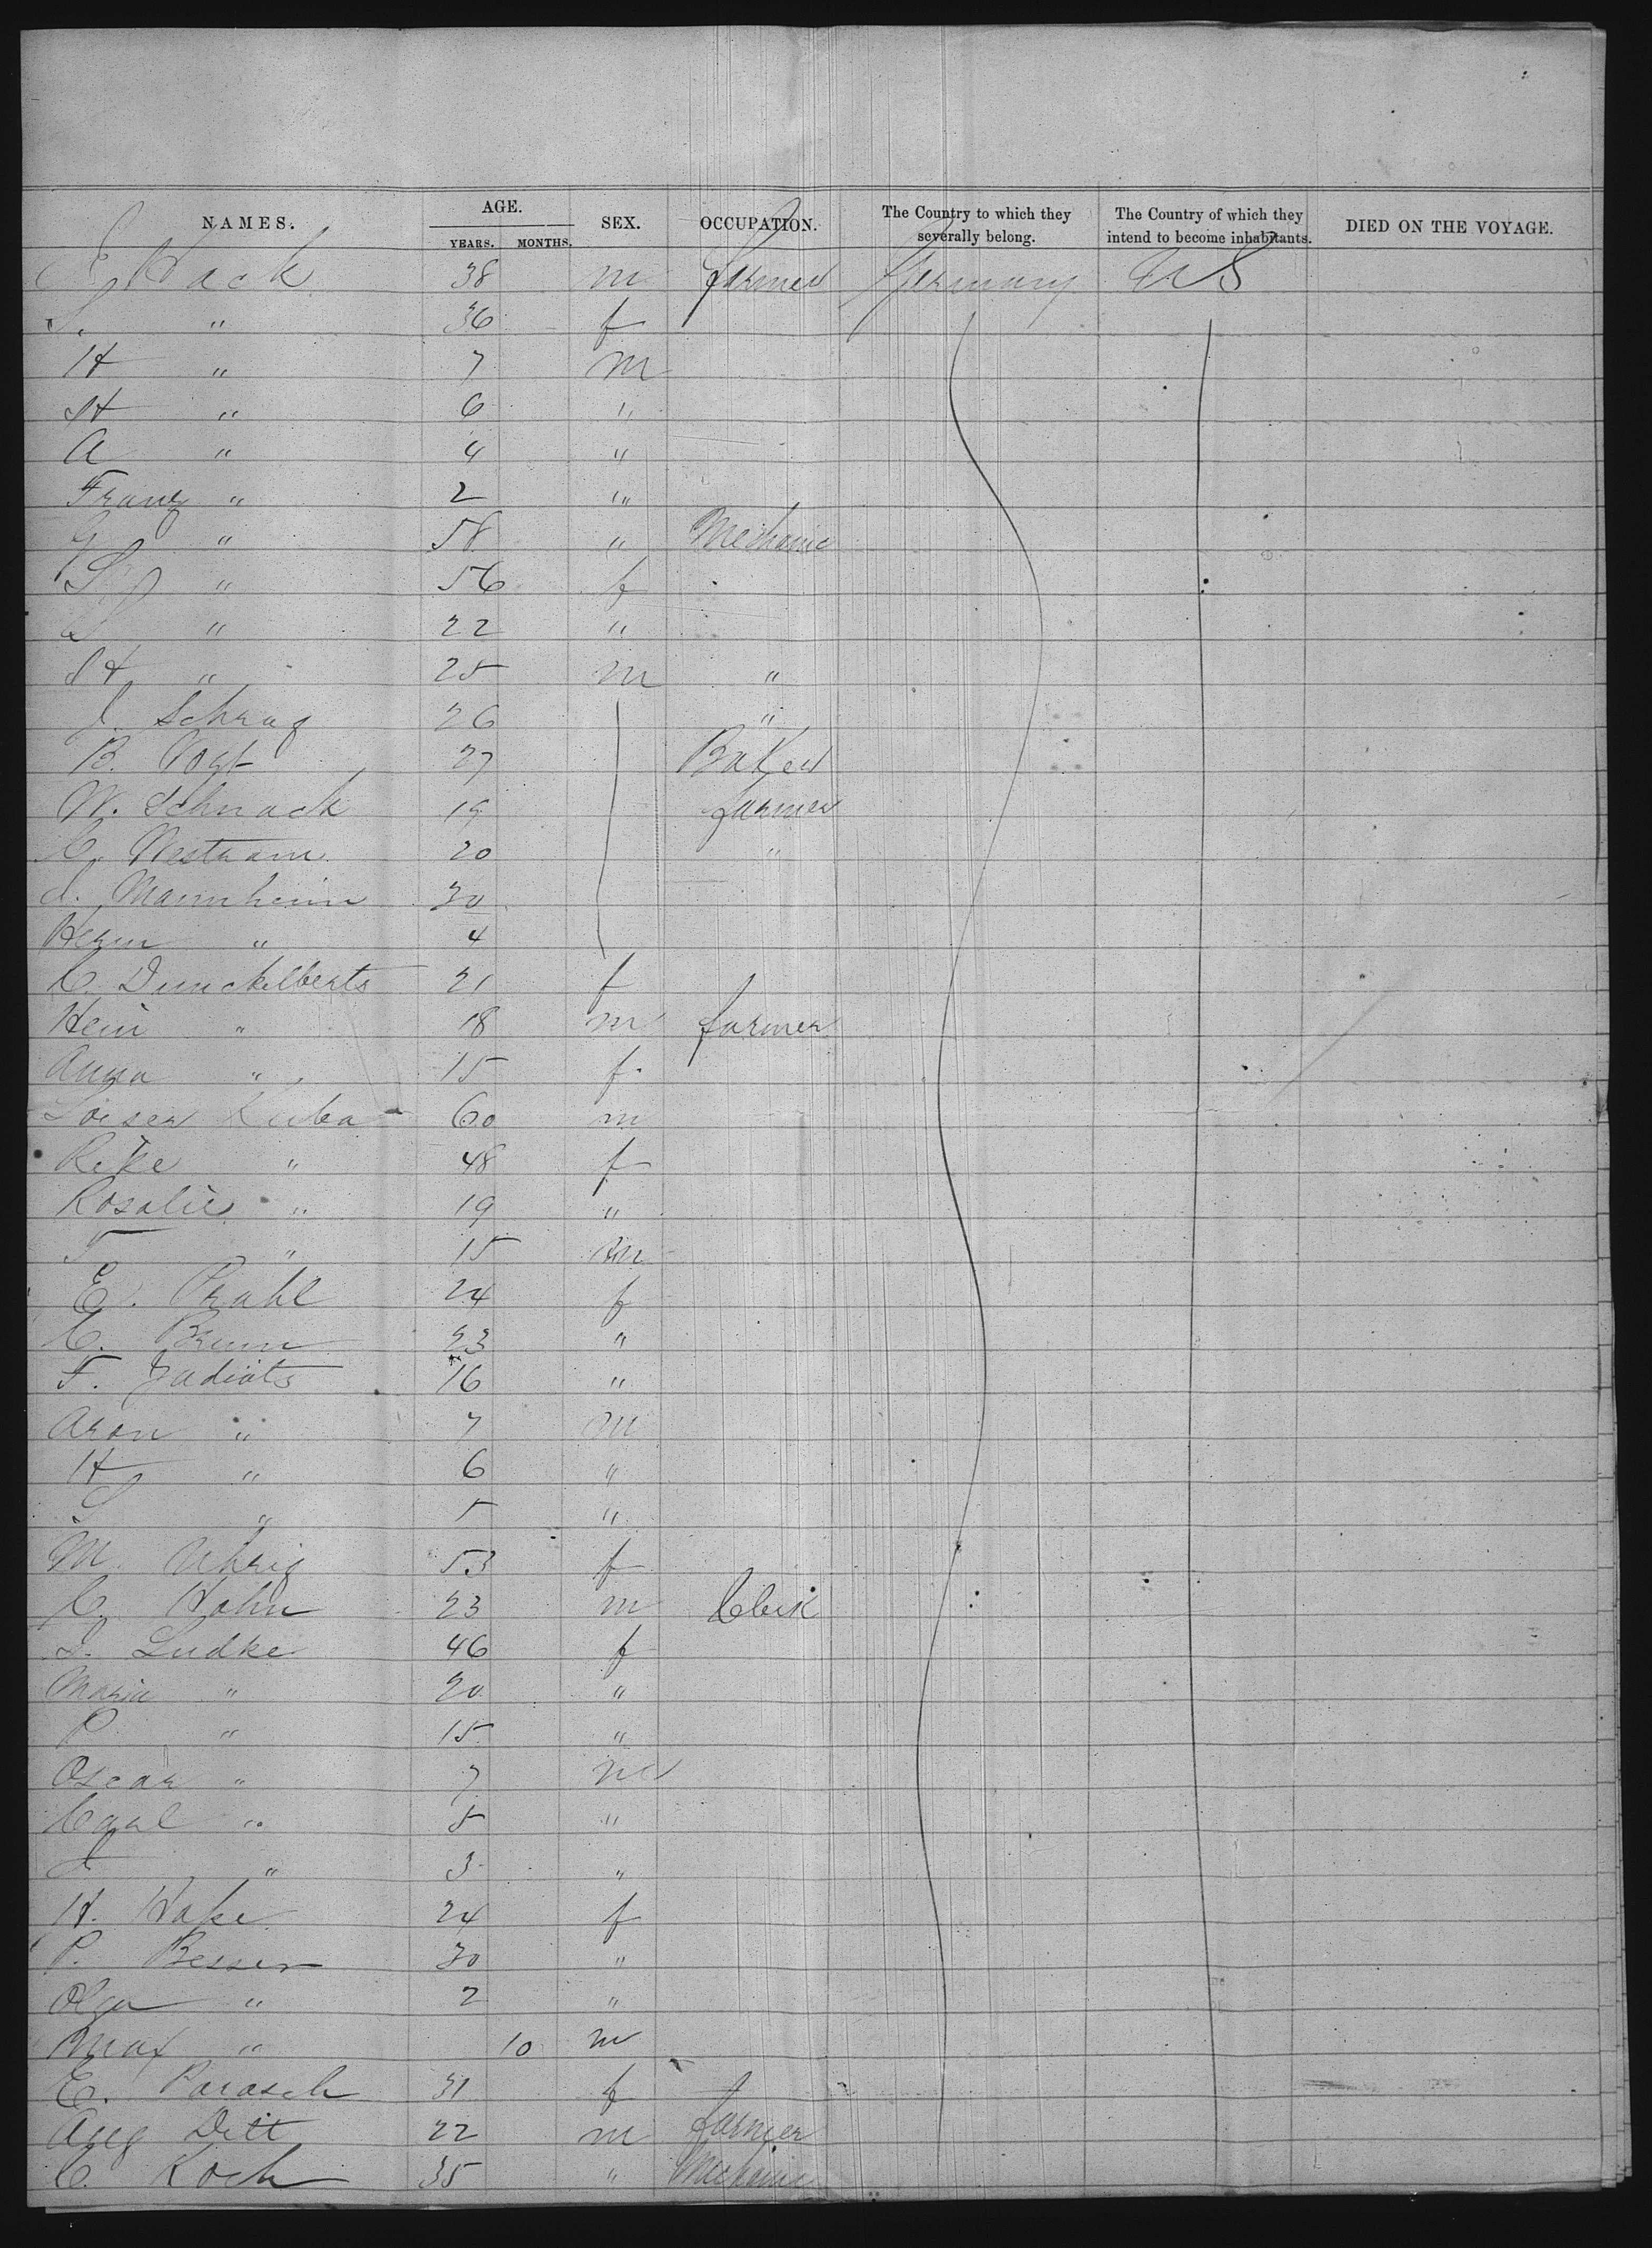 NAMES. AGE. YEARS. MONTHS. SEX. OCCUPATION. The Country to which they severally belong. The Country of which they intend to become inhabitants. DIED ON THE VOYAGE.
Hack 38 m farmer Germany US
S. " 36 f
H " 7 m
H " 6 "
A " 4 "
Franz " 2 "
G " 58 " Mechanic
" 56 f
S " 22 "
H " 25 m "
J. Schrag 26 "
B. Vogt 27 Baker
W. Schnack 19 farmer
C. Westram 20 "
Mannheim 30
Herm " 4
C. Dunckelberts 21 f
Hein " 18 m farmer
Anna " 15 f
Loeser Kuba 60 m
Rike " 48 f
Rosalie " 19 "
T " 15 m
E. Prahl 24 f
C. Brum 23 "
F. Jadiats 16 "
Aron " 7 m
H " 6 "
S " 5 "
M Uhrig 53 f
C. Hahn 23 m Clerk
L. Ludke 46 f
Maria " 20 "
P " 15 "
Oscar " 7 m
Carl " 5 "
" 3 "
H. Hake 24 f
P. Besser 30 "
Olga " 2 "
Max " 10 m
E. Parasch 31 f
Aug Ditt 22 m farmer
C. Koch 35 " Mechanic